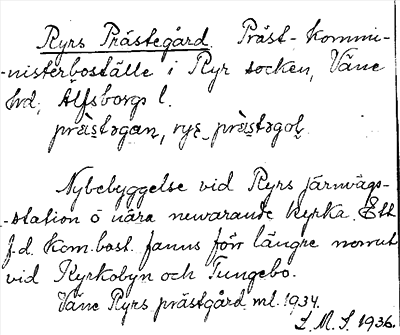 Ryrs Prästegård. Präst- kommi-
-nisterboställe i Ryr socken, Väne
hrd, Älfsborgs l.
prä̀stəgan, ryṣ prä̀stəgoḷ.
Nybebyggelse vid Ryrs järnvägs-
-station ö nära nuvarande kyrka. Ett
f.d. kom.bost. fanns förr längre norrut
vid Kyrkobyn och Tungebo.
Väne Ryrs prästgård ml. 1934.
L.M.S. 1936.